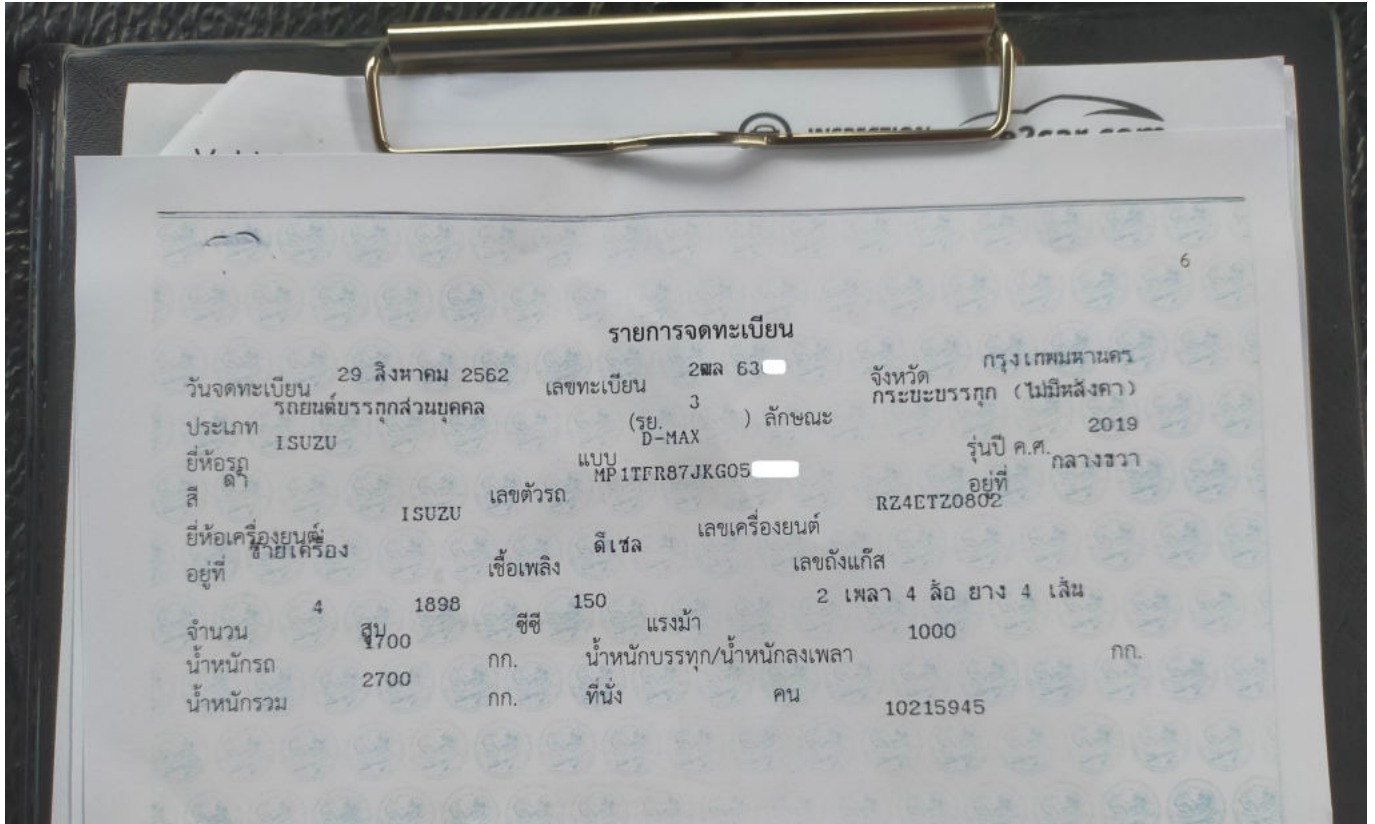 INSPECTION
6
รายการจดทะเบียน
วันจดทะเบียน 29 สิงหาคม 2562 เลขทะเบียน 2ฒล 63 จังหวัด กรุงเทพมหานคร
ประเภท รถยนต์บรรทุกส่วนบุคคล (รย. 3 ) ลักษณะ กระบะบรรทุก (ไม่มีหลังคา)
ยี่ห้อรถ ISUZU แบบ D-MAX รุ่นปี ค.ศ. 2019
สี ดำ เลขตัวรถ MP1TFR87JKG05 อยู่ที่ กลางขวา
ยี่ห้อเครื่องยนต์ ISUZU เลขเครื่องยนต์ RZ4ETZ0802
อยู่ที่ ซ้ายเครื่อง เชื้อเพลิง ดีเซล เลขถังแก๊ส
จำนวน 4 สูบ 1898 ซีซี 150 แรงม้า 2 เพลา 4 ล้อ ยาง 4 เส้น
น้ำหนักรถ 1700 กก. น้ำหนักบรรทุก/น้ำหนักลงเพลา 1000 กก.
น้ำหนักรวม 2700 กก. ที่นั่ง คน 10215945